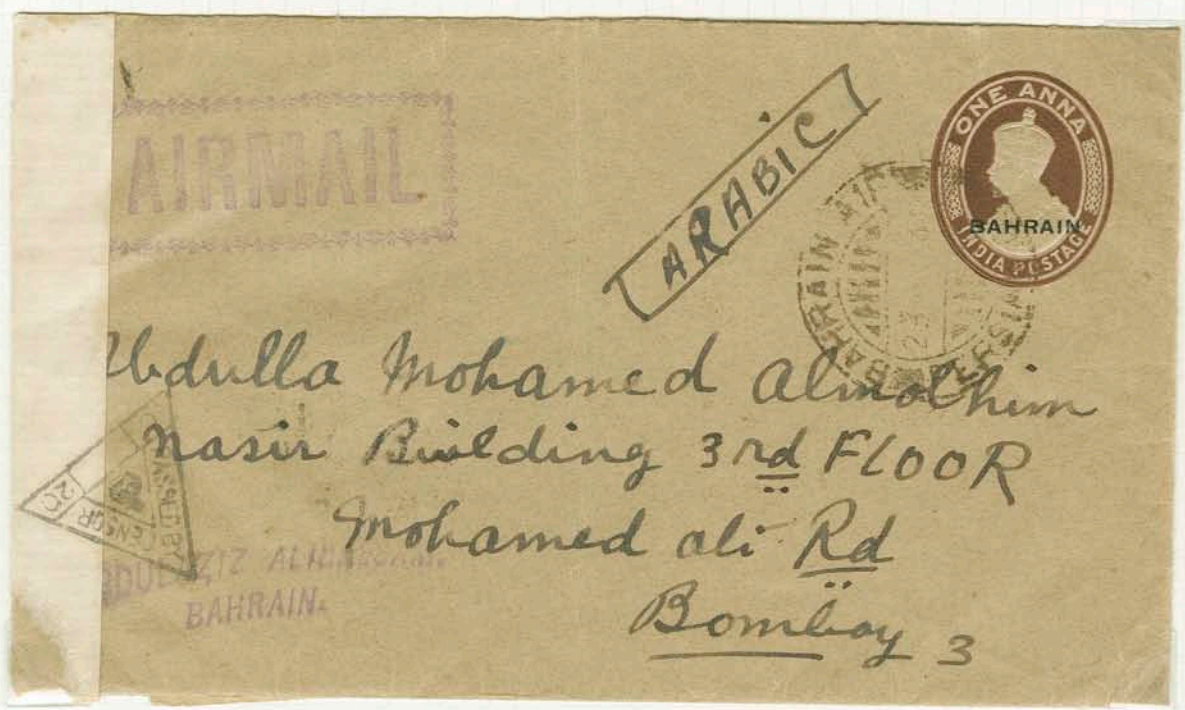 AIRMAIL
ARABIC
ONE ANNA
BAHRAIN
INDIA POSTAGE
BAHRAIN
23
Abdulla Mohamed Almolhim
Nasir Building 3rd FLOOR
Mohamed ali Rd
Bombay 3
PASSED BY
CENSOR
BAHRAIN.